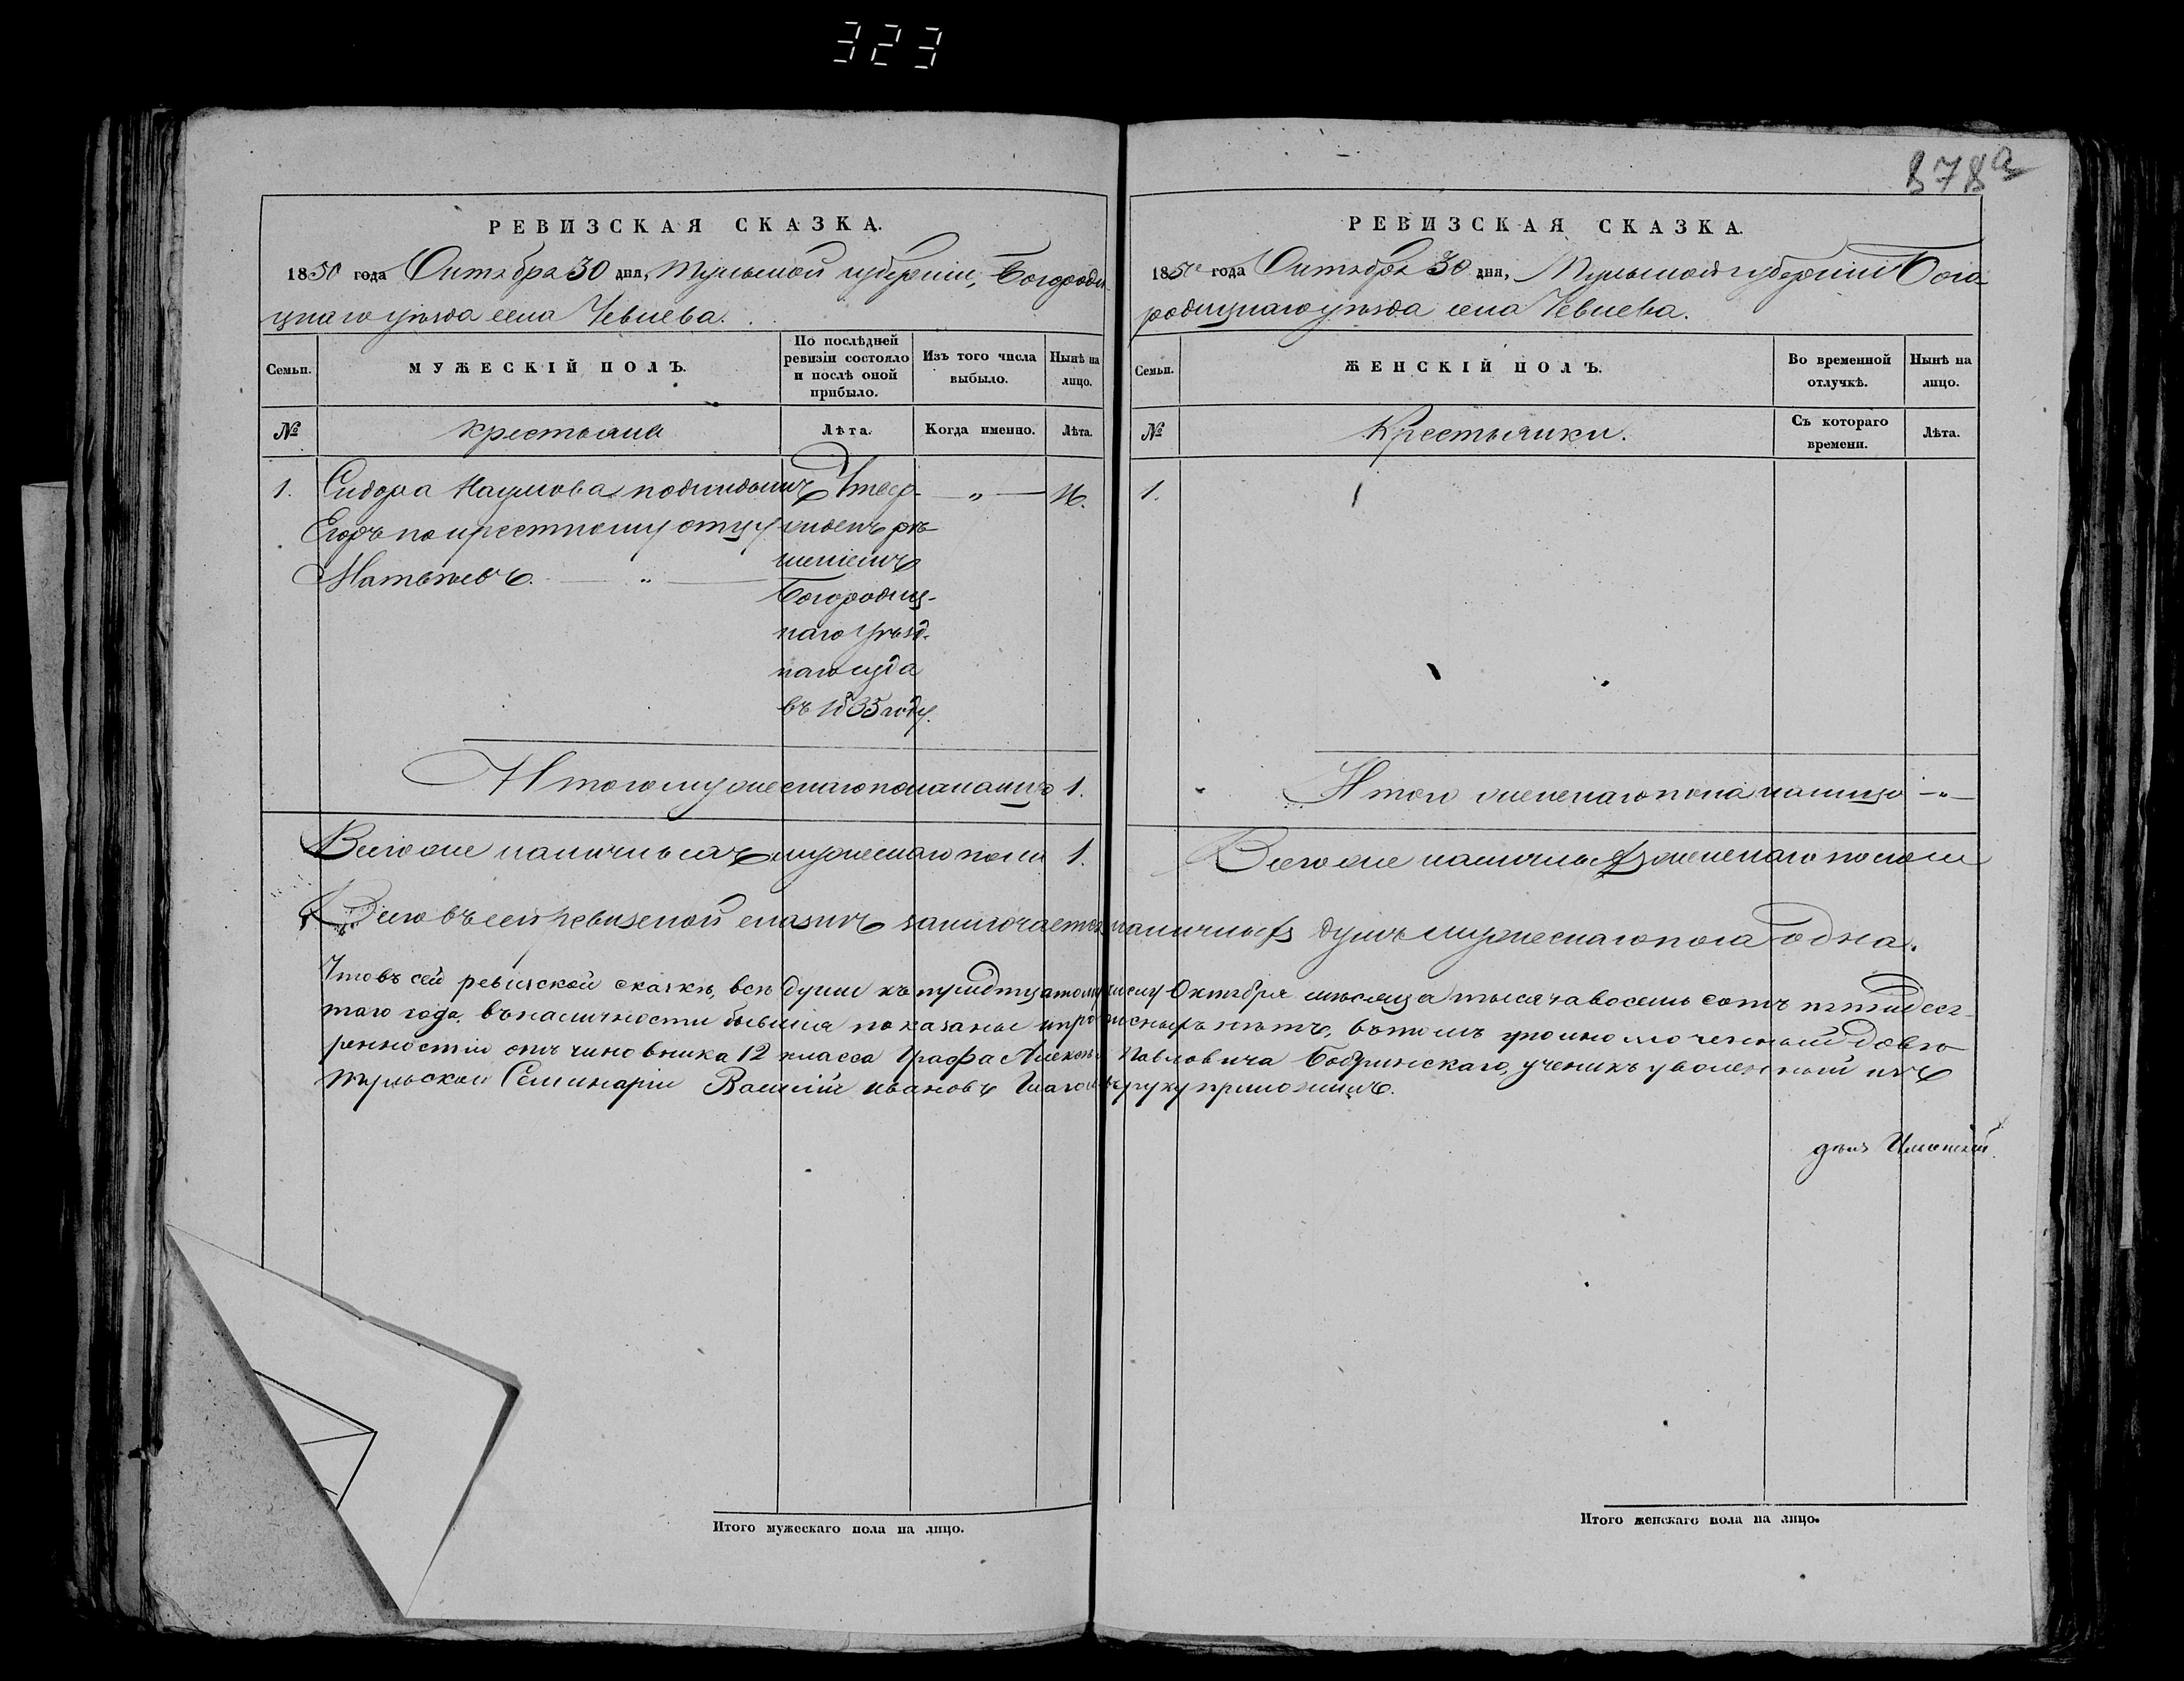 323
878а
РЕВИЗСКАЯ СКАЗКА.
1850 года Октября 30 дня, Тульской губерніи, Богороди-
цкаго уѣзда села Іевлева.
Семьи.
МУЖЕСКІЙ ПОЛЪ.
По послѣдней ревизіи состояло и послѣ оной прибыло.
Изъ того числа выбыло.
Нынѣ на лицо.
№
крестьяне
Лѣта.
Когда именно.
Лѣта.
1. Сидора Наумова подкидышъ
Егоръ по крестному отцу
Матвѣевъ. — „ —
Утвер-
жденъ рѣ-
шеніемъ
Богородиц-
каго Уѣзд-
наго суда
въ 1835 году.
— „ —
16.
Итого мужескаго пола на лицо 1.
Всего же наличныхъ мужескаго пола 1.
РЕВИЗСКАЯ СКАЗКА.
1850 года Октября 30 дня, Тульской губерніи Бого-
родицкаго уѣзда села Іевлева.
Семьи.
ЖЕНСКІЙ ПОЛЪ.
Во временной отлучкѣ.
Нынѣ на лицо.
№
Крестьянки.
Съ котораго времени.
Лѣта.
1.
Итого женскаго пола на лицо — „ —
Всего же наличныхъ женскаго пола
Всего въ сей ревизской сказкѣ заключается наличныхъ душъ мужескаго пола одна.
Что въ сей ревизской сказкѣ, всѣ души къ тридцатому числу Октября мѣсяца тысяча восемь сотъ пятидеся-
таго года, въ наличности бывшія показаны и прописныхъ нѣтъ, въ томъ уполномоченный довѣ-
ренностію отъ чиновника 12 класса Графа Алексѣя Павловича Бобринскаго, ученикъ уволенный изъ
Тульской Семинаріи Василій Ивановъ руку приложилъ.
Итого мужескаго пола на лицо.
Итого женскаго пола на лицо.